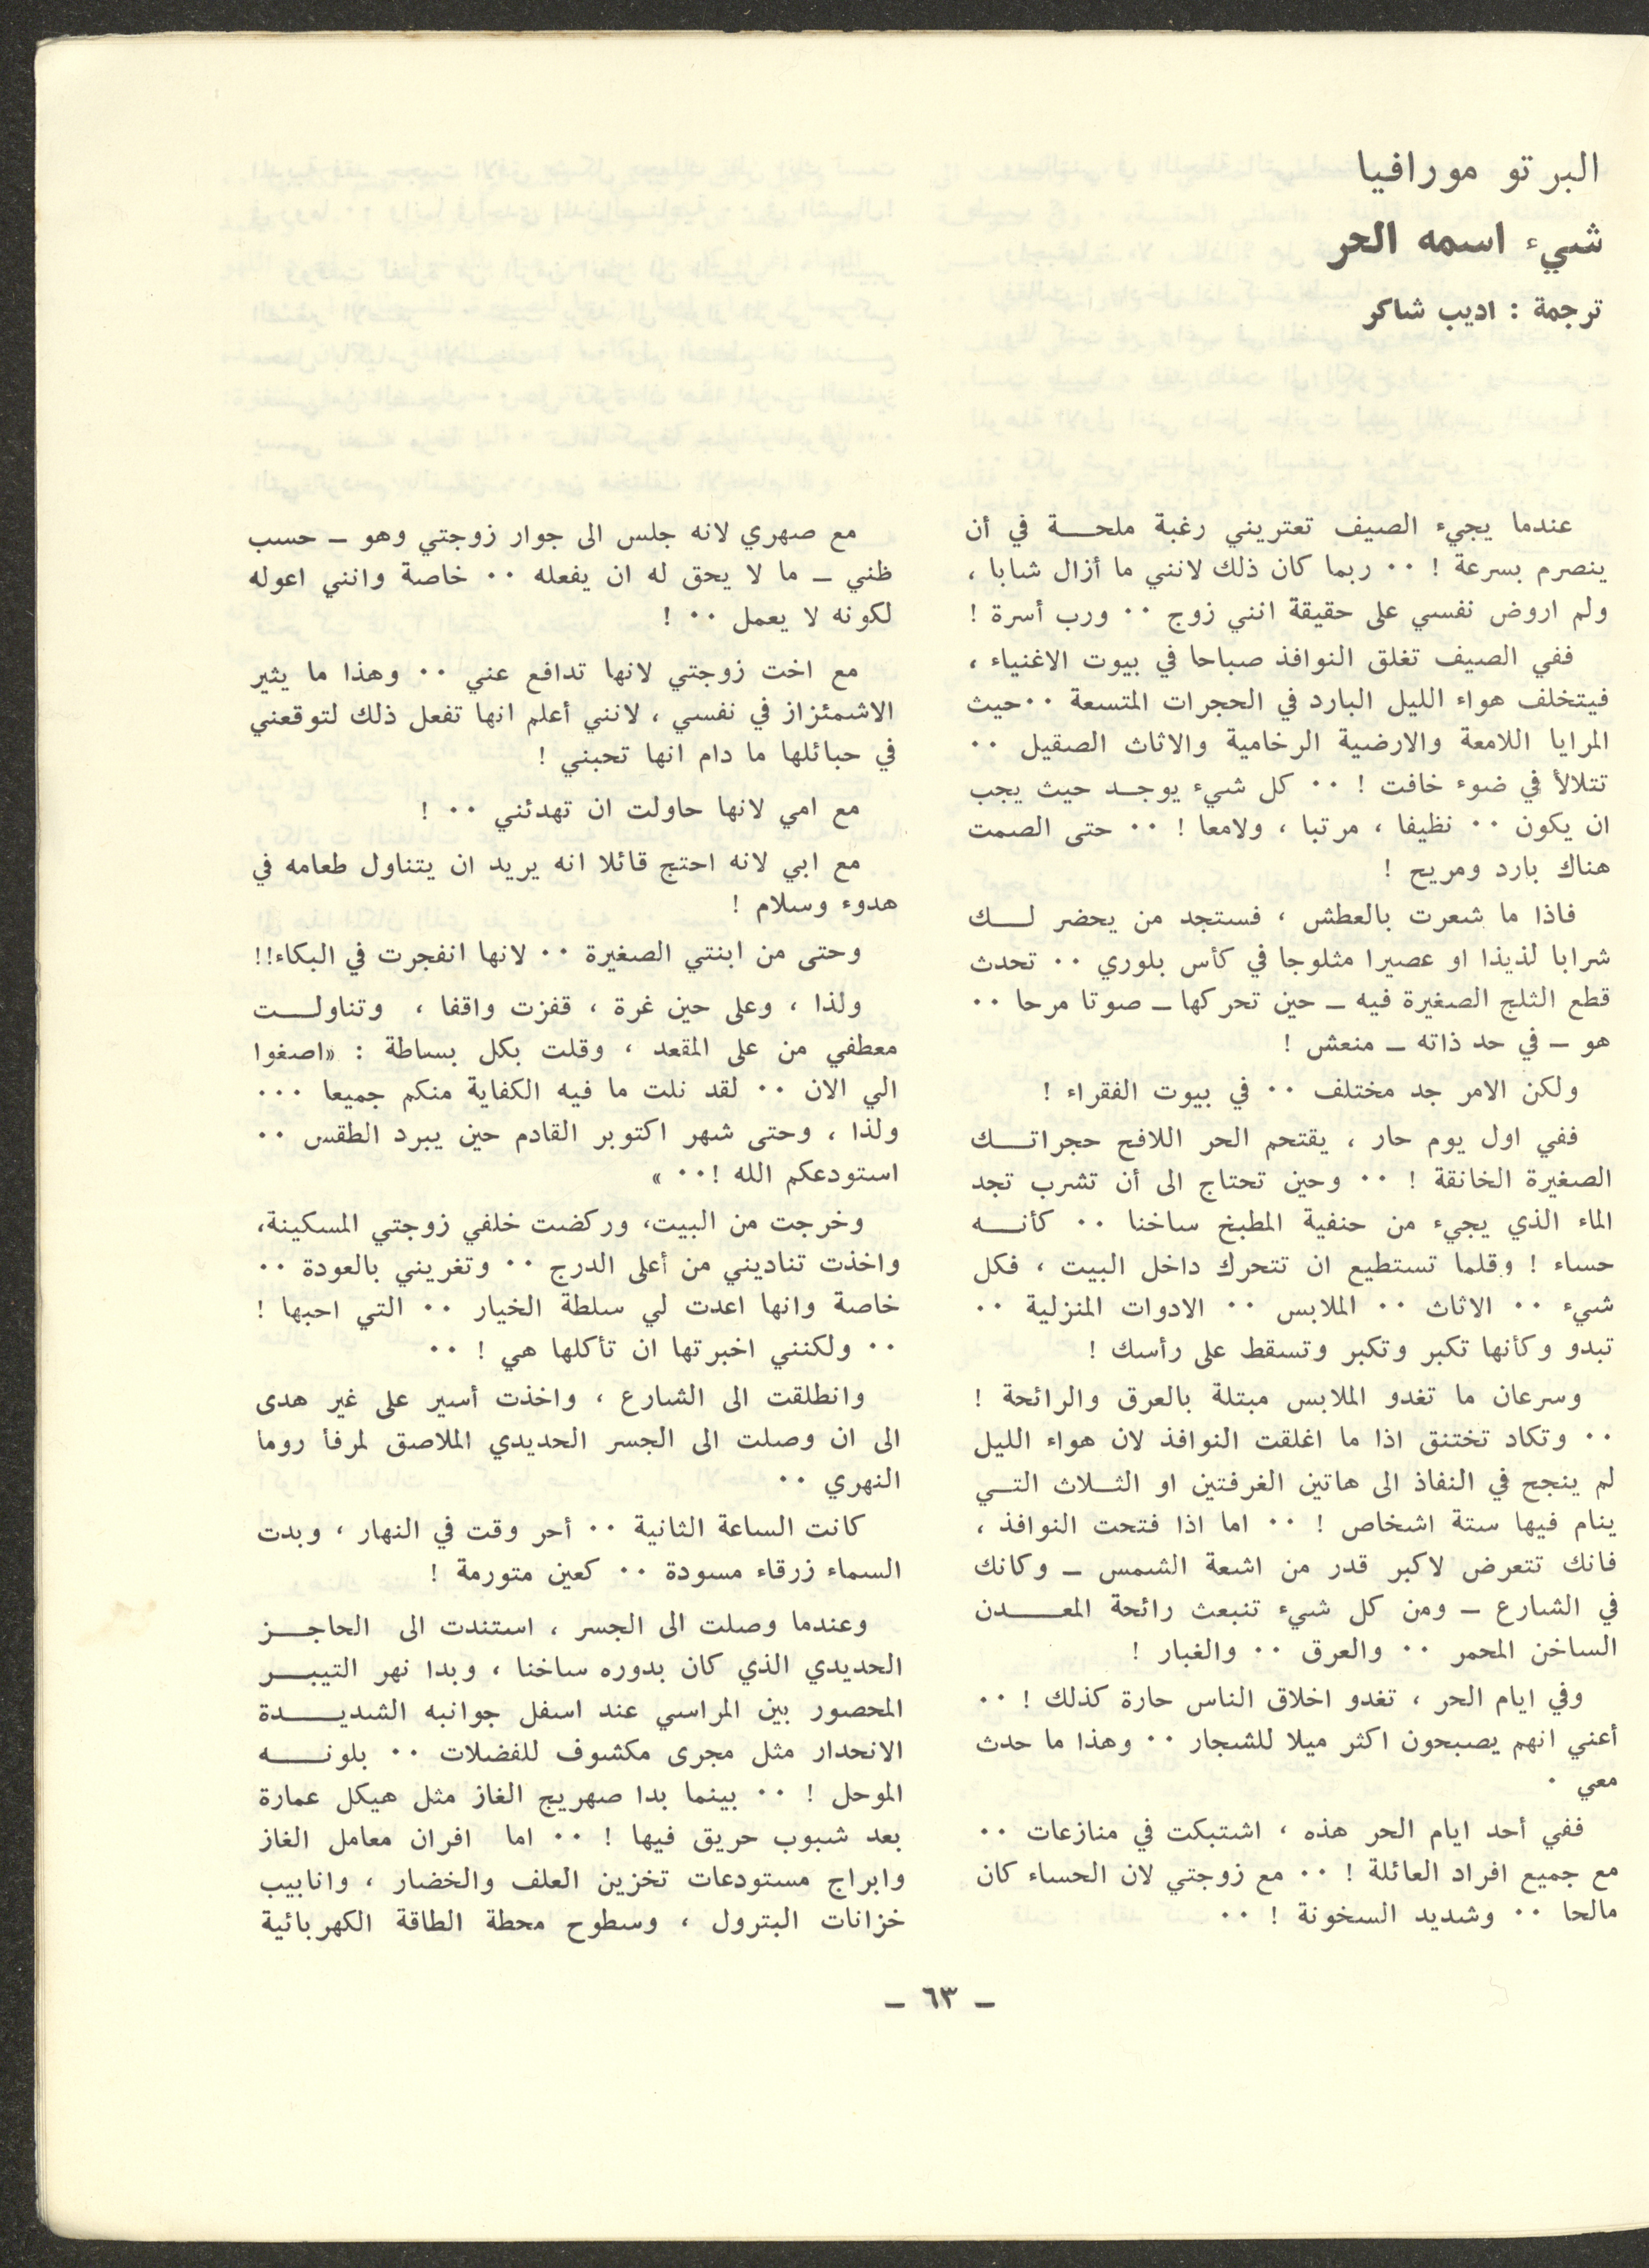 البرتو مورافيا
شيء اسمه الحر
ترجمة : اديب شاكر
عندما يجيء الصيف تعتريني رغبة ملحة في أن
ينصرم بسرعة ! ٠٠ ربما كان ذلك لانني ما أزال شابا ،
ولم اروض نفسي على حقيقة انني زوج ٠٠ ورب أسرة !
ففي الصيف تغلق النوافذ صباحا في بيوت الاغنياء ،
فيتخلف هواء الليل البارد في الحجرات المتسعة ٠٠ حيث
المرايا اللامعة والارضية الرخامية والاثاث الصقيل ٠٠
تتلالأ في ضوء خافت ! ٠٠ كل شيء يوجد حيث يجب
ان يكون ٠٠ نظيفا ، مرتبا ، ولامعا ! ٠٠ حتى الصمت
هناك بارد ومريح !
فاذا ما شعرت بالعطش ، فستجد من يحضر لك
شرابا لذيذا او عصيرا مثلوجا في كأس بلوري ٠٠ تحدث
قطع الثلج الصغيرة فيه ـ حين تحركها ـ صوتا مرحا ٠٠
هو ـ في حد ذاته ـ منعش !
ولكن الامر جد مختلف ٠٠ في بيوت الفقراء !
ففي اول يوم حار ، يقتحم الحر اللافح حجراتك
الصغيرة الخانقة ! ٠٠ وحين تحتاج الى أن تشرب تجد
الماء الذي يجيء من حنفية المطبخ ساخنا ٠٠ كأنه
حساء ! وقلما تستطيع ان تتحرك داخل البيت ، فكل
شيء ٠٠ الاثاث ٠٠ الملابس ٠٠ الادوات المنزلية ٠٠
تبدو وكأنها تكبر وتكبر وتسقط على رأسك !
وسرعان ما تغدو الملابس مبتلة بالعرق والرائحة !
٠٠ وتكاد تختنق اذا ما اغلقت النوافذ لان هواء الليل
لم ينجح في النفاذ الى هاتين الغرفتين او الثلاث التي
ينام فيها ستة اشخاص ! ٠٠ اما اذا فتحت النوافذ ،
فانك تتعرض لاكبر قدر من اشعة الشمس ـ وكانك
في الشارع ـ ومن كل شيء تنبعث رائحة المعدن
الساخن المحمر ٠٠ والعرق ٠٠ والغبار !
وفي ايام الحر ، تغدو اخلاق الناس حارة كذلك ! ٠٠
أعني انهم يصبحون اكثر ميلا للشجار ٠٠ وهذا ما حدث
معي ٠
ففي أحد ايام الحر هذه ، اشتبكت في منازعات ٠٠
مع جميع افراد العائلة ! ٠٠ مع زوجتي لان الحساء كان
مالحا ٠٠ وشديد السخونة ! ٠٠
مع صهري لانه جلس الى جوار زوجتي وهو ـ حسب
ظني ـ ما لا يحق له ان يفعله ٠٠ خاصة وانني اعوله
لكونه لا يعمل ٠٠ !
مع اخت زوجتي لانها تدافع عني ٠٠ وهذا ما يثير
الاشمئزاز في نفسي ، لانني أعلم انها تفعل ذلك لتوقعني
في حبائلها ما دام انها تحبني !
مع امي لانها حاولت ان تهدئني ٠٠ !
مع ابي لانه احتج قائلا انه يريد ان يتناول طعامه في
هدوء وسلام !
وحتى من ابنتي الصغيرة ٠٠ لانها انفجرت في البكاء!!
ولذا ، وعلى حين غرة ، قفزت واقفا ، وتناولت
معطفي من على المقعد ، وقلت بكل بساطة : «اصغوا
الي الان ٠٠ لقد نلت ما فيه الكفاية منكم جميعا ٠٠٠
ولذا ، وحتى شهر اكتوبر القادم حين يبرد الطقس ٠٠
استودعكم الله !٠٠ »
وخرجت من البيت، وركضت خلفي زوجتي المسكينة،
واخذت تناديني من أعلى الدرج ٠٠ وتغريني بالعودة ٠٠
خاصة وانها اعدت لي سلطة الخيار ٠٠ التي احبها !
٠٠ ولكنني اخبرتها ان تأكلها هي ! ٠٠
وانطلقت الى الشارع ، واخذت أسير على غير هدى
الى ان وصلت الى الجسر الحديدي الملاصق لمرفأ روما
النهري ٠٠
كانت الساعة الثانية ٠٠ أحر وقت في النهار ، وبدت
السماء زرقاء مسودة ٠٠ كعين متورمة !
وعندما وصلت الى الجسر ، استندت الى الحاجز
الحديدي الذي كان بدوره ساخنا ، وبدا نهر التيبر
المحصور بين المراسي عند اسفل جوانبه الشديدة
الانحدار مثل مجرى مكشوف للفضلات ٠٠ بلونه
الموحل ! ٠٠ بينما بدا صهريج الغاز مثل هيكل عمارة
بعد شبوب حريق فيها ! ٠٠ اما افران معامل الغاز
وابراج مستودعات تخزين العلف والخضار ، وانابيب
خزانات البترول ، وسطوح محطة الطاقة الكهربائية
ـ ٦٣ ـ